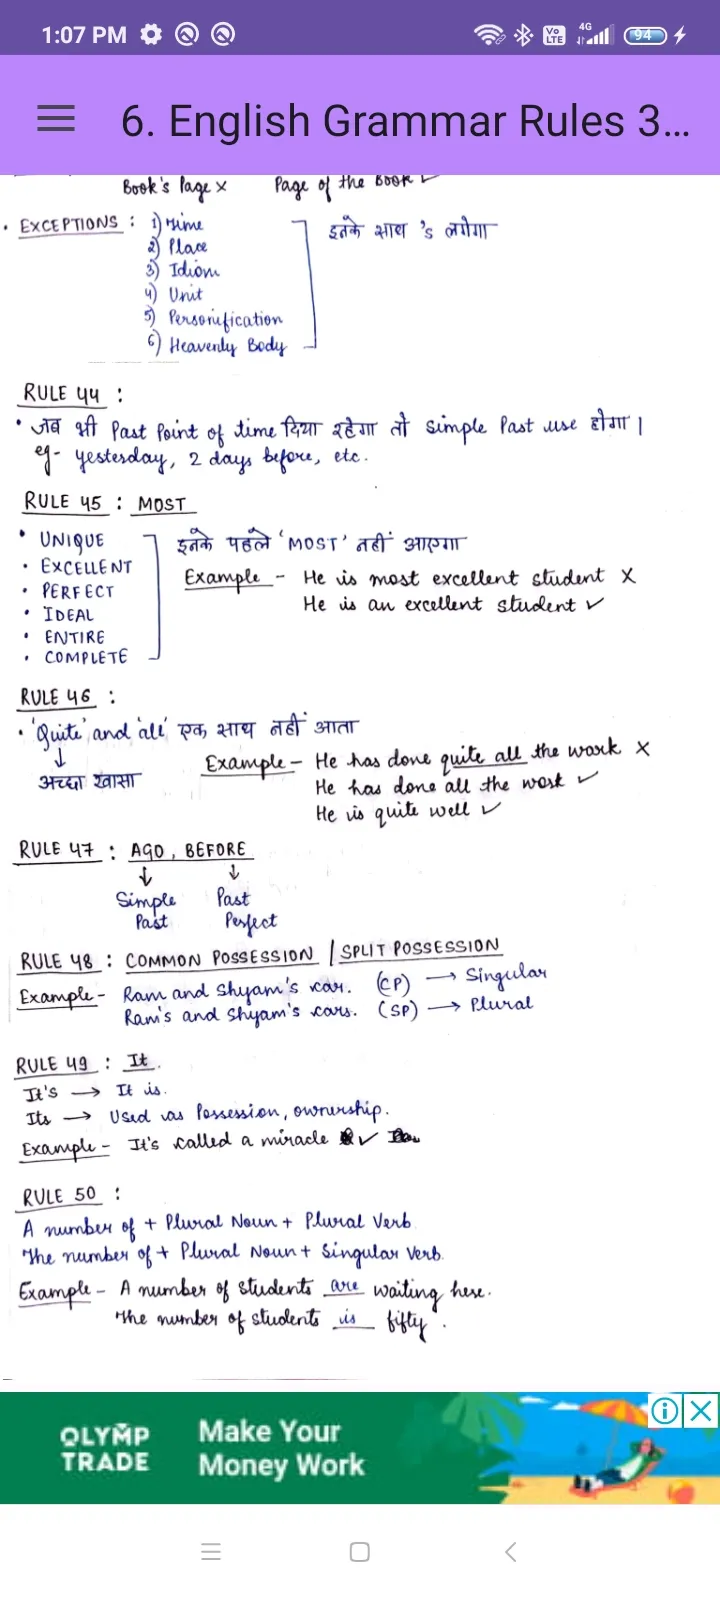 1:07 PM
Vo LTE 4G 94
6. English Grammar Rules 3...
Book's Page x Page of the Book ✓
• EXCEPTIONS : 1) Time इनके साथ 's लगेगा
2) Place
3) Idiom
4) Unit
5) Personification
6) Heavenly Body
RULE 44 :
• जब भी Past Point of time दिया रहेगा तो Simple Past use होगा |
eg- yesterday, 2 days before, etc.
RULE 45 : MOST
• UNIQUE इनके पहले 'MOST' नहीं आएगा
• EXCELLENT Example - He is most excellent student x
• PERFECT He is an excellent student ✓
• IDEAL
• ENTIRE
• COMPLETE
RULE 46 :
• 'Quite' and 'all' एक साथ नहीं आता
↓ Example - He has done quite all the work x
अच्छा खासा He has done all the work ✓
He is quite well ✓
RULE 47 : AGO, BEFORE
↓ ↓
Simple Past
Past Perfect
RULE 48 : COMMON POSSESSION / SPLIT POSSESSION
Example - Ram and Shyam's car. (CP) → Singular
Ram's and Shyam's cars. (SP) → Plural
RULE 49 : It.
It's → It is.
Its → Used as Possession, ownership.
Example - It's called a miracle ✓
RULE 50 :
A number of + Plural Noun + Plural Verb.
The number of + Plural Noun + Singular Verb.
Example - A number of students are waiting here.
The number of students is fifty.
OLYMP Make Your
TRADE Money Work